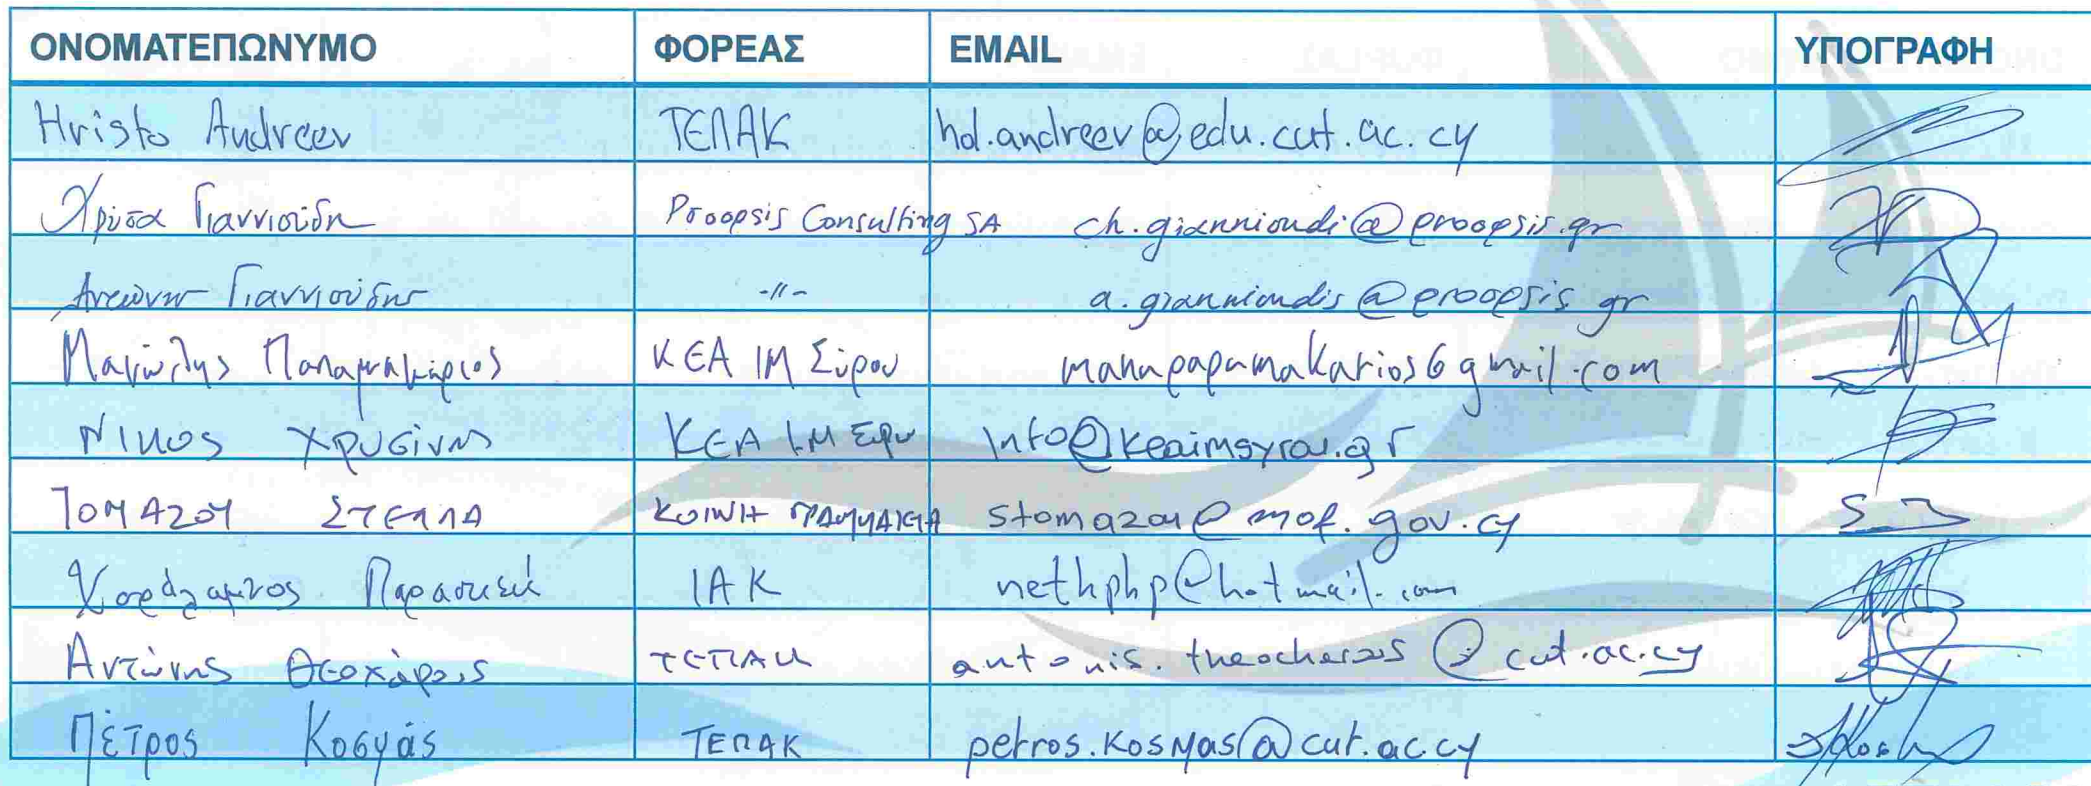 ΟΝΟΜΑΤΕΠΩΝΥΜΟ ΦΟΡΕΑΣ EMAIL ΥΠΟΓΡΑΦΗ
Hristo Andreev ΤΕΠΑΚ hd.andreev@edu.cut.ac.cy
Χρύσα Γιαννιούδη Proopsis Consulting SA ch.giannioudi@proopsis.gr
Αντώνης Γιαννιούδης -〃- a.giannioudis@proopsis.gr
Μανώλης Παπαμακάριος ΚΕΑ ΙΜ Σύρου manupapamakarios6gmail.com
Νίκος Χρυσίνης ΚΕΑ Ι.Μ Σύρου info@keaimsyrou.gr
ΤΟΜΑΖΟΥ ΣΤΕΛΛΑ ΚΟΙΝΗ ΓΡΑΜΜΑΤΕΙΑ stomazou@mof.gov.cy
Χαράλαμπος Παρασκευά ΙΑΚ nethphp@hotmail.com
Αντώνης Θεοχάρους ΤΕΠΑΚ antonis.theocharous@cut.ac.cy
Πέτρος Κοσμάς ΤΕΠΑΚ petros.kosmas@cut.ac.cy